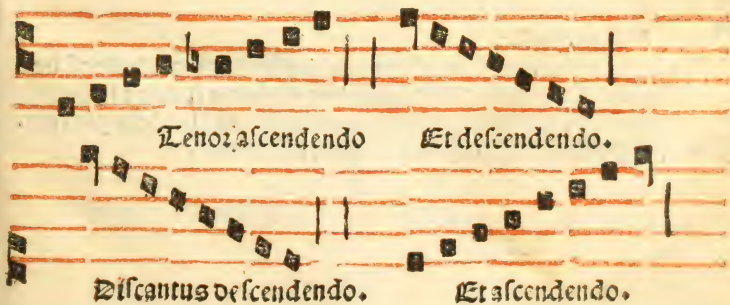 Tenor ascendendo Et descendendo.
Discantus descendendo. Et ascendendo.